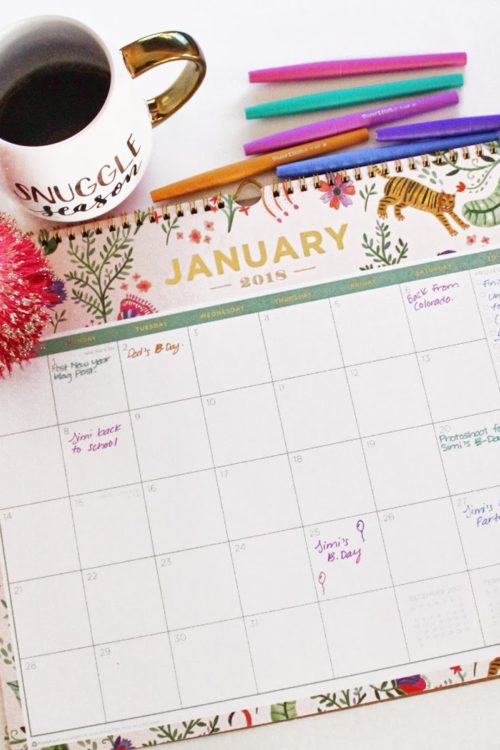 SNUGGLE
season
JANUARY
2018
MONDAY TUESDAY WEDNESDAY THURSDAY FRIDAY SATURDAY
2 3 4 5 6
Post New Year
blog Post.
Dad's B.Day.
Back from
Colorado.
8 9 10 11 12 13
Simi back
to school
14 15 16 17 18 19 20
Photoshoot fo
Simi's B-Day
21 22 23 24 25 26 27
Simi's
B.Day
Simi's
Part
28 29 30 31